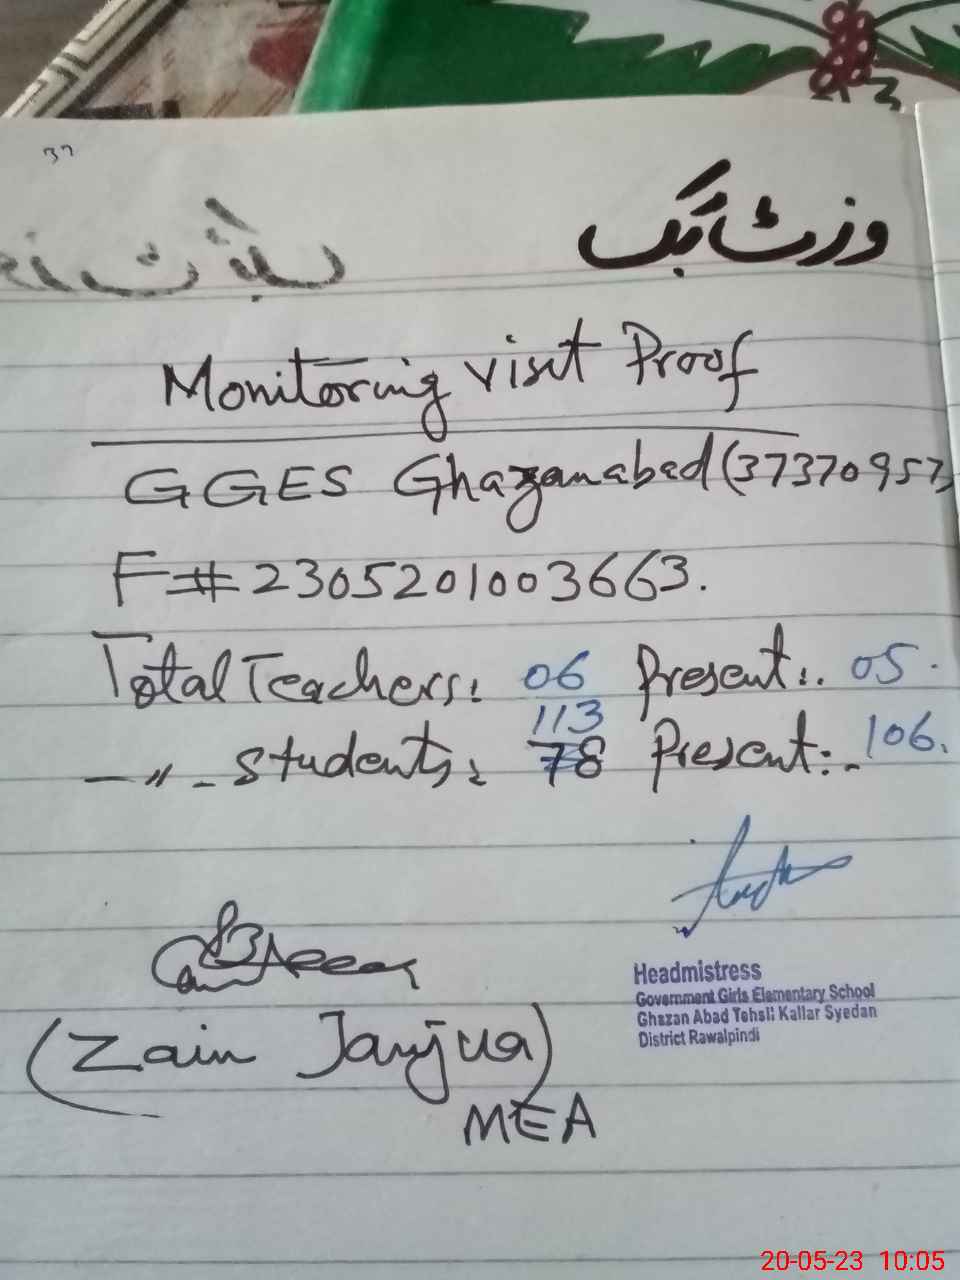 37
وزٹ بک
Monitoring visit Proof
GGES Ghazanabad (37370957)
F# 2305201003663.
Total Teachers: 06 Present:. 05.
—〃- Students: 113 78 Present:- 106.
Headmistress
Government Girls Elementary School
Ghazan Abad Tehsil Kallar Syedan
District Rawalpindi
(Zain Janjua)
MEA
20-05-23 10:05